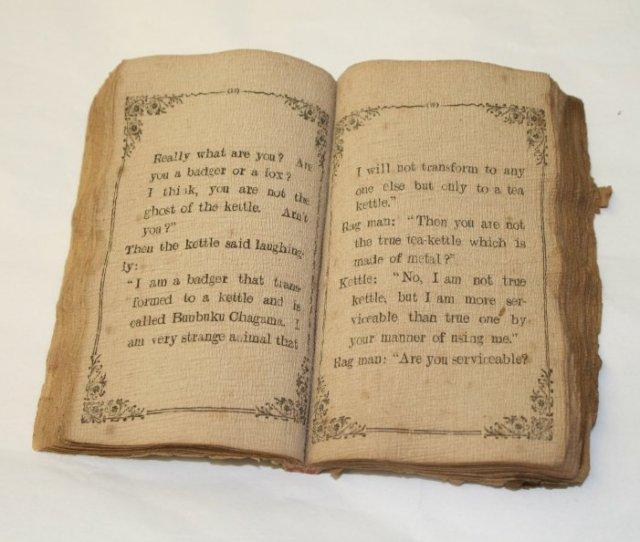 Really what are you? Are
you a badger or a fox?
I think, you are not the
ghost of the kettle. Arn't
you?"
Then the kettle said laughing-
ly:
"I am a badger that trans-
formed to a kettle and is
called Bunbuku Chagama. I
am very strange animal that
I will not transform to any
one else but only to a tea
kettle."
Rag man: "Then you are not
the true tea-kettle which is
made of metal?"
Kettle: "No, I am not true
kettle, but I am more ser-
viceable than true one by
your manner of using me."
Rag man: "Are you serviceable?